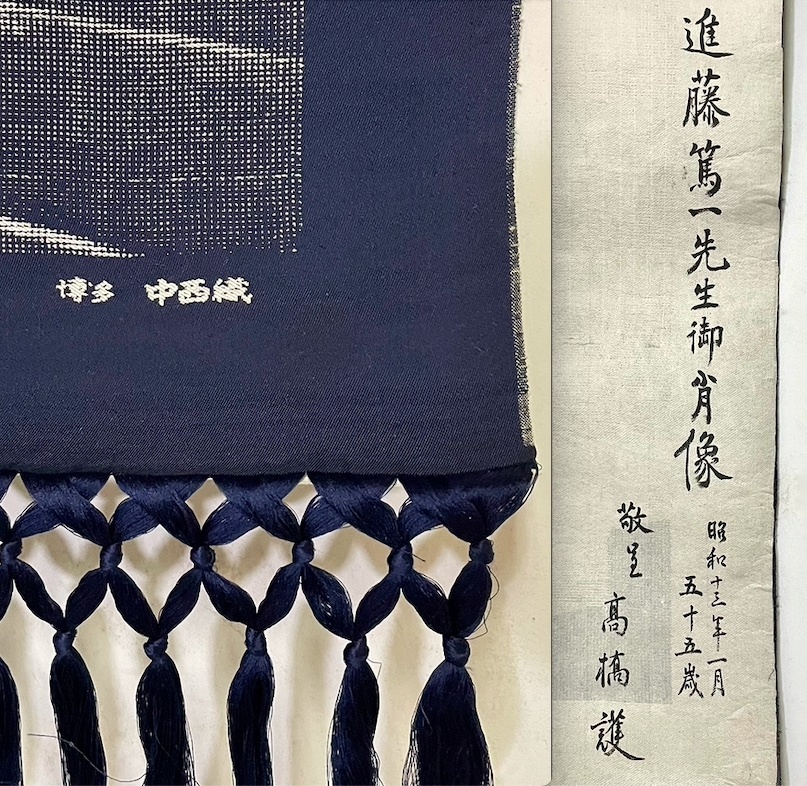 博多 中西織
進藤篤一先生御肖像
昭和十三年一月
五十五歳
敬呈
高橋護